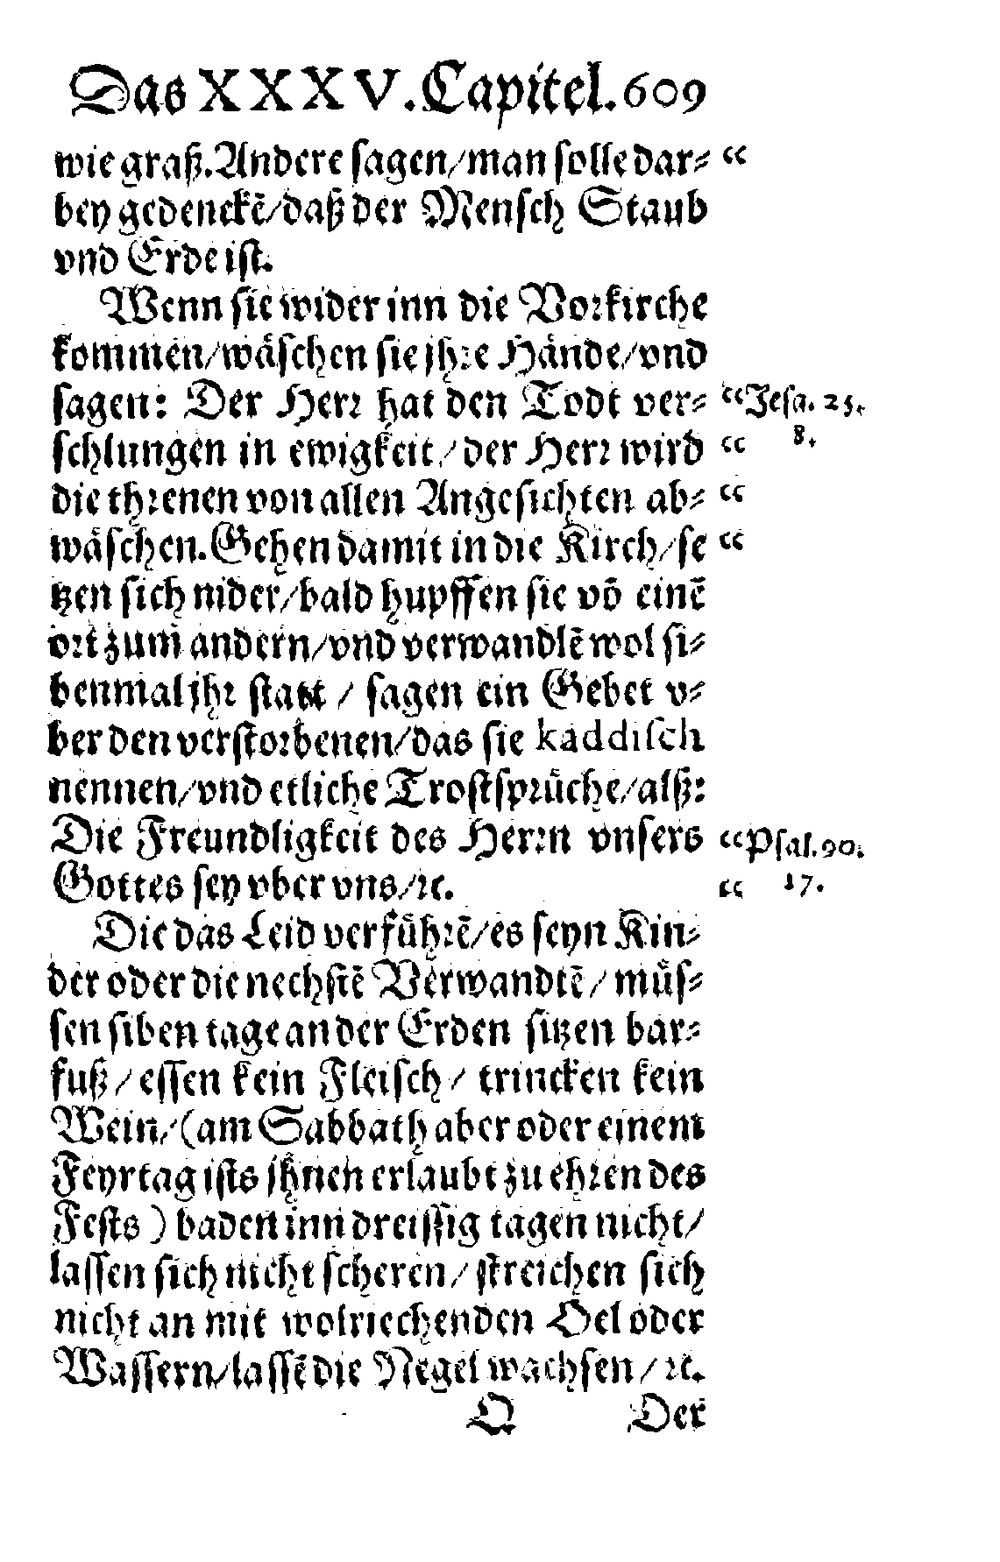 Das XXXV. Capitel. 609
wie graß. Andere sagen/man solle dar⸗ “
bey gedenckē/daß der Mensch Staub
vnd Erde ist.
Wenn sie wider inn die Vorkirche
kommen/wäschen sie jhre Hände/vnd
sagen: Der Herr hat den Todt ver⸗ “Jesa. 25.
schlungen in ewigkeit/der Herr wird “ 8.
die threnen von allen Angesichten ab⸗ “
wäschen. Gehen damit in die Kirch/se “
tzen sich nider/bald hupffen sie vō einē
ort zum andern/vnd verwandlē wol si⸗
benmal jhr statt / sagen ein Gebet v⸗
ber den verstorbenen/das sie kaddisch
nennen/vnd etliche Trostsprüche/alß:
Die Freundligkeit des Herrn vnsers “Psal. 90.
Gottes sey vber vns/ꝛc. “ 17.
Die das Leid verführē/es seyn Kin⸗
der oder die nechstē Verwandtē/müs⸗
sen siben tage an der Erden sitzen bar⸗
fuß/essen kein Fleisch/trincken kein
Wein/(am Sabbath aber oder einem
Feyrtag ists jhnen erlaubt zu ehren des
Fests) baden inn dreissig tagen nicht/
lassen sich nicht scheren/streichen sich
nicht an mit wolriechenden Oel oder
Wassern/lassē die Negel wachsen/ꝛc.
Q Der